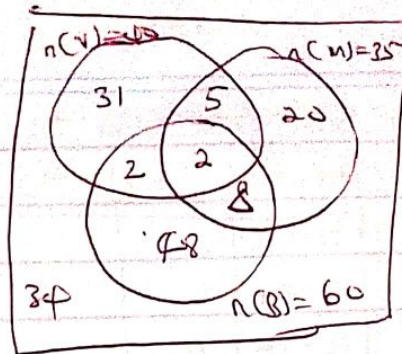 n(V)=40
n(M)=35
31
5
20
2
2
8
48
34
n(B)=60